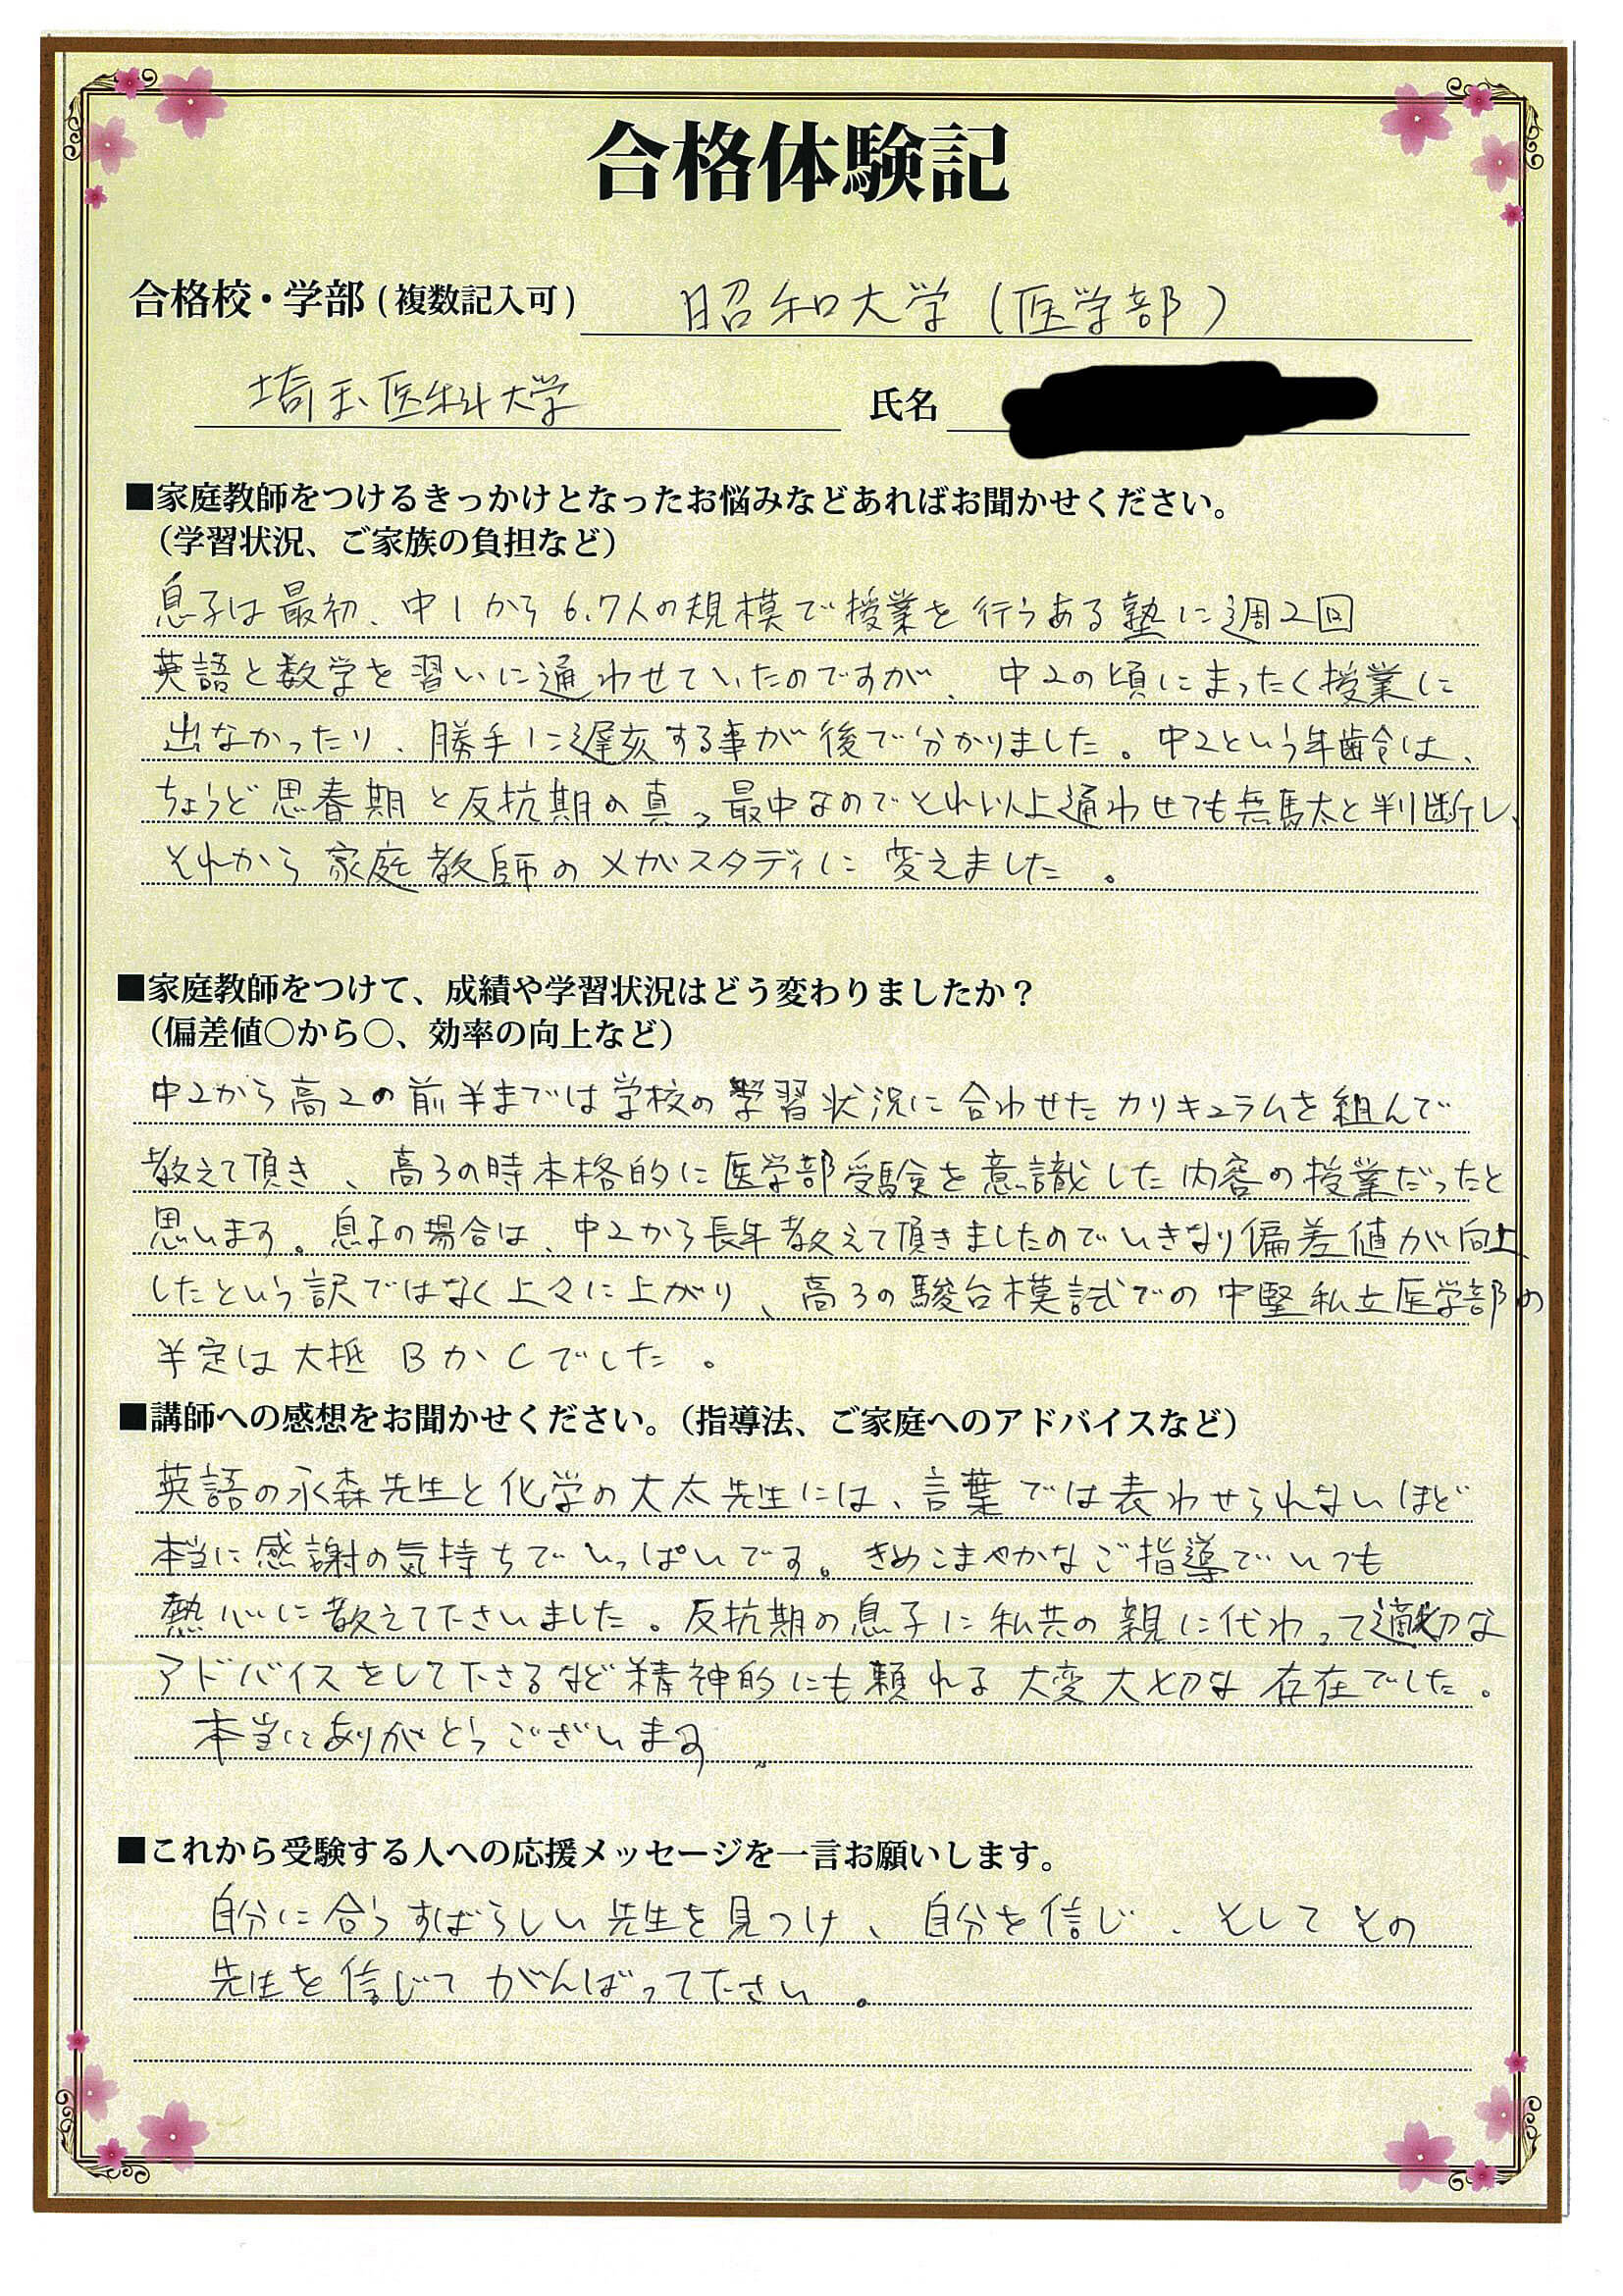 合格体験記
合格校・学部(複数記入可) 昭和大学(医学部)
埼玉医科大学 氏名
■家庭教師をつけるきっかけとなったお悩みなどあればお聞かせください。
(学習状況、ご家族の負担など)
息子は最初、中1から6.7人の規模で授業を行うある塾に週2回
英語と数学を習いに通わせていたのですが、中2の頃にまったく授業に
出なかったり、勝手に遅刻する事が後で分かりました。中2という年齢は、
ちょうど思春期と反抗期の真っ最中なのでそれ以上通わせても無駄と判断し、
それから家庭教師のメガスタディに変えました。
■家庭教師をつけて、成績や学習状況はどう変わりましたか?
(偏差値○から○、効率の向上など)
中2から高2の前半までは学校の学習状況に合わせたカリキュラムを組んで
教えて頂き、高3の時本格的に医学部受験を意識した内容の授業だったと
思います。息子の場合は、中2から長年教えて頂きましたのでいきなり偏差値が向上
したという訳ではなく上々に上がり、高3の駿台模試での中堅私立医学部の
判定は大抵BかCでした。
■講師への感想をお聞かせください。(指導法、ご家庭へのアドバイスなど)
英語の永森先生と化学の大太先生には、言葉では表わせられないほど
本当に感謝の気持ちでいっぱいです。きめこまやかなご指導でいつも
熱心に教えて下さいました。反抗期の息子に私共の親に代わって適切な
アドバイスをして下さるなど精神的にも頼れる大変大切な存在でした。
本当にありがとうございます
■これから受験する人への応援メッセージを一言お願いします。
自分に合うすばらしい先生を見つけ、自分を信じ、そしてその
先生を信じてがんばって下さい。